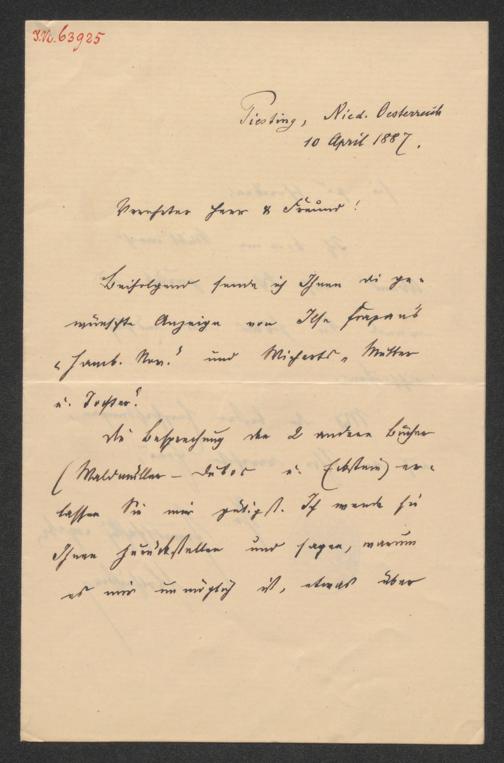 J.N. 63925
Piesting, Nied. Oesterreich
10 April 1887.
Verehrter Herr & Freund!
Beifolgend sende ich Ihnen die ge-
wünschte Anzeige von Ilse Frapan's
„Hamb. Nov." und Wicherts „Mutter
u. Tochter."
Die Besprechung der 2 andern Bücher
(Waldmüller - Dubos u. Eckstein) er-
lassen Sie mir gütigst. Ich werde sie
Ihnen zurückstellen und sagen, warum
es mir unmöglich ist, etwas über